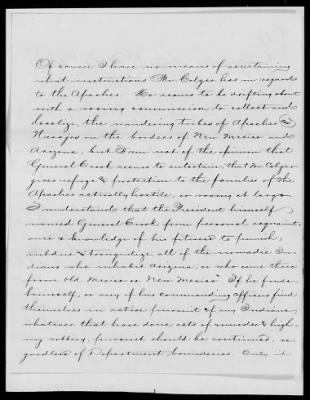 Of course I have no means of ascertaining
what instructions Mr. Colyer has in regard
to the Apaches. He seems to be drifting about
with a roving commission to collect and
localize the wandering tribes of Apaches &
Navajos on the borders of New Mexico and
Arizona, but I am not of the opinion that
General Crook seems to entertain, that Mr Colyer
gives refuge & protection to the families of the
Apaches actually hostile, or roving at large.
I understand that the President himself
named General Crook from personal acquaint-
ance & knowledge of his fitness to punish,
subdue & tranquilize all of the nomadic In-
dians who inhabit Arizona, or who come there
from Old Mexico or New Mexico. If he finds
himself, or any of his commanding officers find
themselves in active pursuit of any Indians
whatever that have done acts of murder & high-
way robbery, pursuit should be continued, re-
gardless of Department boundaries. Only it